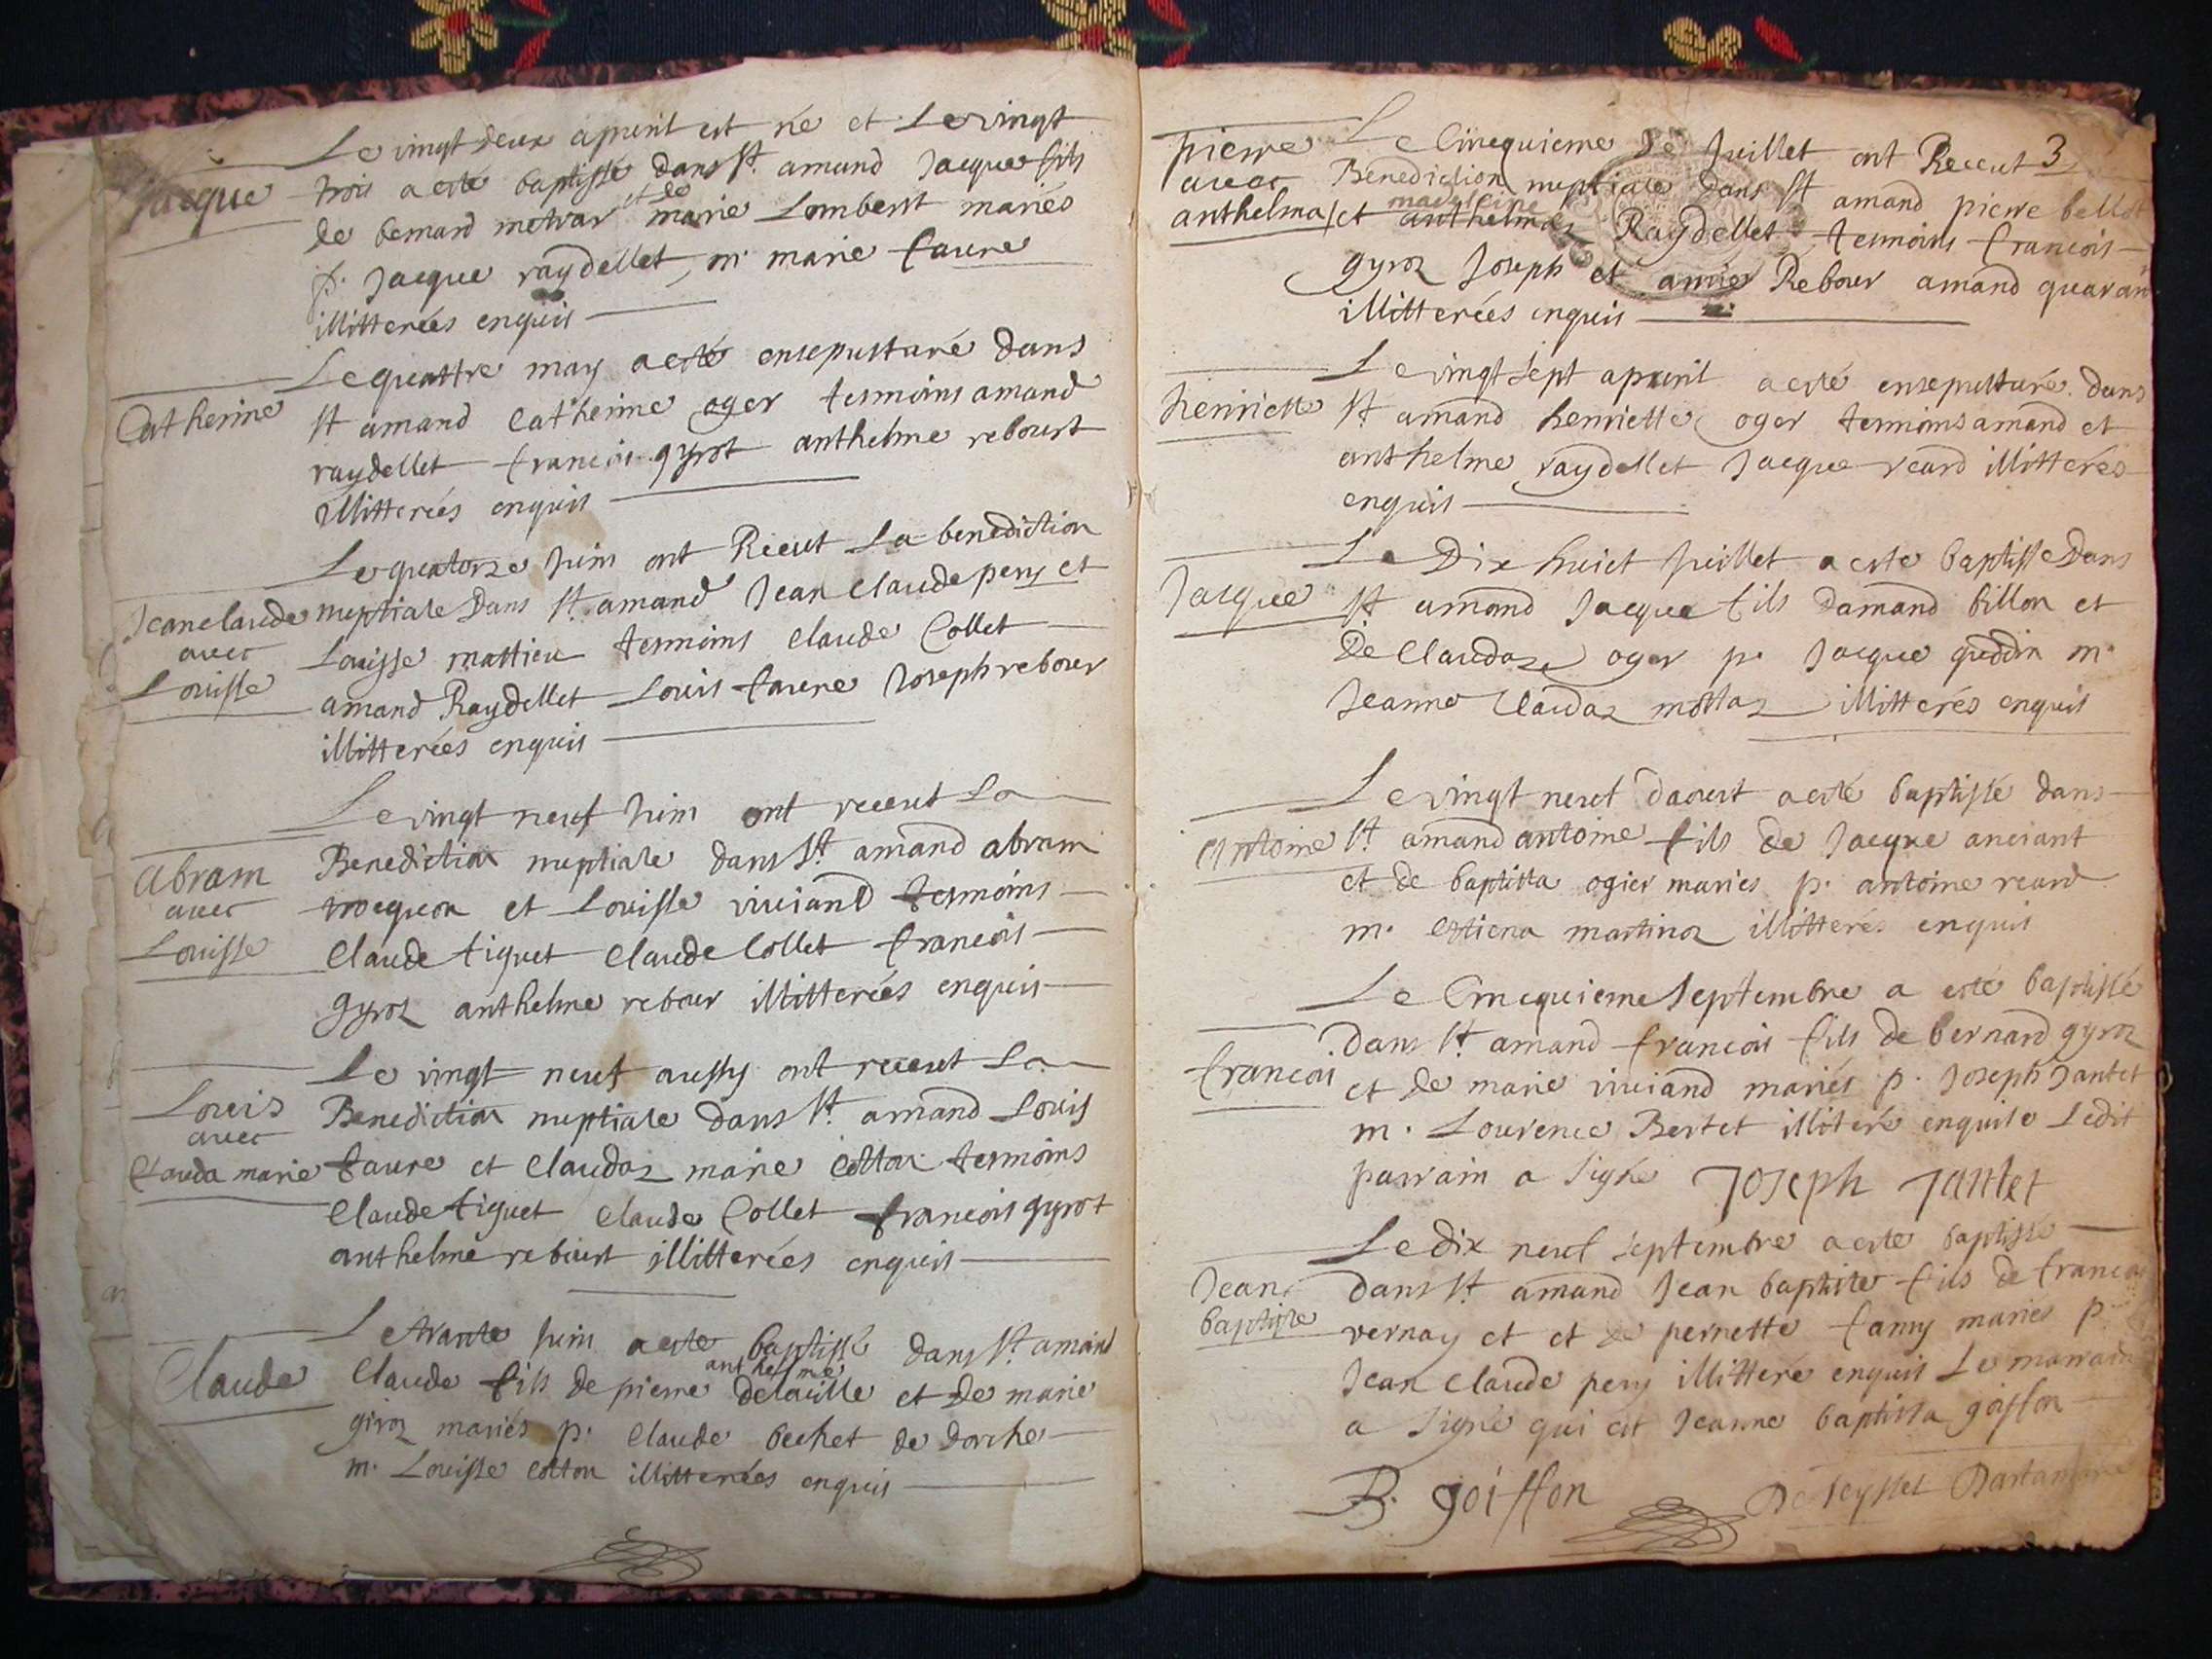 Le vingt deux apuril est né et Le vingt
Jacque
trois a esté baptissé dans st. amand Jacque fils
et de
de bernard metrar marie Lombert mariés
p. Jacque raydellet, m. marie faure
illitterées enquis
Le quattre may a esté ensepulturé dans
Catherine
st amand Catherine oger tesmoins amand
raydellet francois gyrot anthelme rebourt
illitterées enquis
Le quatorze Juin ont Receut La benediction
Jean claude
nuptiale Dans st. amand Jean Claude pery et
avec
Louisse mattieu tesmoins Claude Collet
Louisse
amand Raydellet Louis faure Joseph rebour
illitterées enquis
Le vingt neuf Juin ont receut La
Abram
Benediction nuptiale dans st. amand abram
avec
trocquon et Louisse viuiand tesmoins
Louisse
Claude tiguet Claude Collet francois
gyroz anthelme rebour illitterées enquis
Le vingt neuf aussy ont receut La
Louis
Benediction nuptiale dans st. amand Louis
avec
Clauda marie
faure et Claudaz marie Cotton tesmoins
Claude tiguet Claude Collet francois gyrot
anthelme rebourt illitterées enquis
Le trante Juin a esté baptissé dans st. amand
anthelme
Claude
Claude fils de pierre delaville et de marie
giroz mariés p. Claude bechet de dorche
m. Louisse Cotton illitterées enquis
3
Le Cincquieme de Juillet ont Receut
pierre
avec
Benediction nuptiale dans st amand pierre bellot
madeleine
anthelma
et anthelmaz Raydellet tesmoins francois
gyroz Joseph et amié Rebour amand quaran
illitterées enquis
Le vingt sept apuril a esté ensepulturé dans
henriette
st. amand henriette oger tesmoins amand et
anthelme raydellet Jacque reard illitterés
enquis
Le Dix huict Juillet a esté baptisse Dans
Jacque
st amand Jacque fils damand billon et
De Claudaz oger p. Jacque guddin m.
Jeanne Claudaz mottaz illitterés enquis
Le vingt neuf daoust a esté baptissé dans
Antoine
st. amand antoine fils de Jacque anciant
et de baptista ogier mariés p. antoine reard
m. Estiena martinaz illitterés enquis
Le Cincquieme septembre a esté baptissé
dans st. amand francois fils de bernard gyroz
francois
et de marie viuiand mariés p. Joseph Jantet
m. Lourence Bertet illiteré enquise Ledit
parrain a signé Joseph Jantet
Le dix neuf septembre a esté baptissé
Jean
baptiste
dans st. amand Jean baptiste fils de francois
vernay et et de pernette famy mariés p.
Jean Claude pery illitteré enquis Le marraine
a signé qui est Jeanne baptista goiffon
B. goiffon De seyssel Dartamare